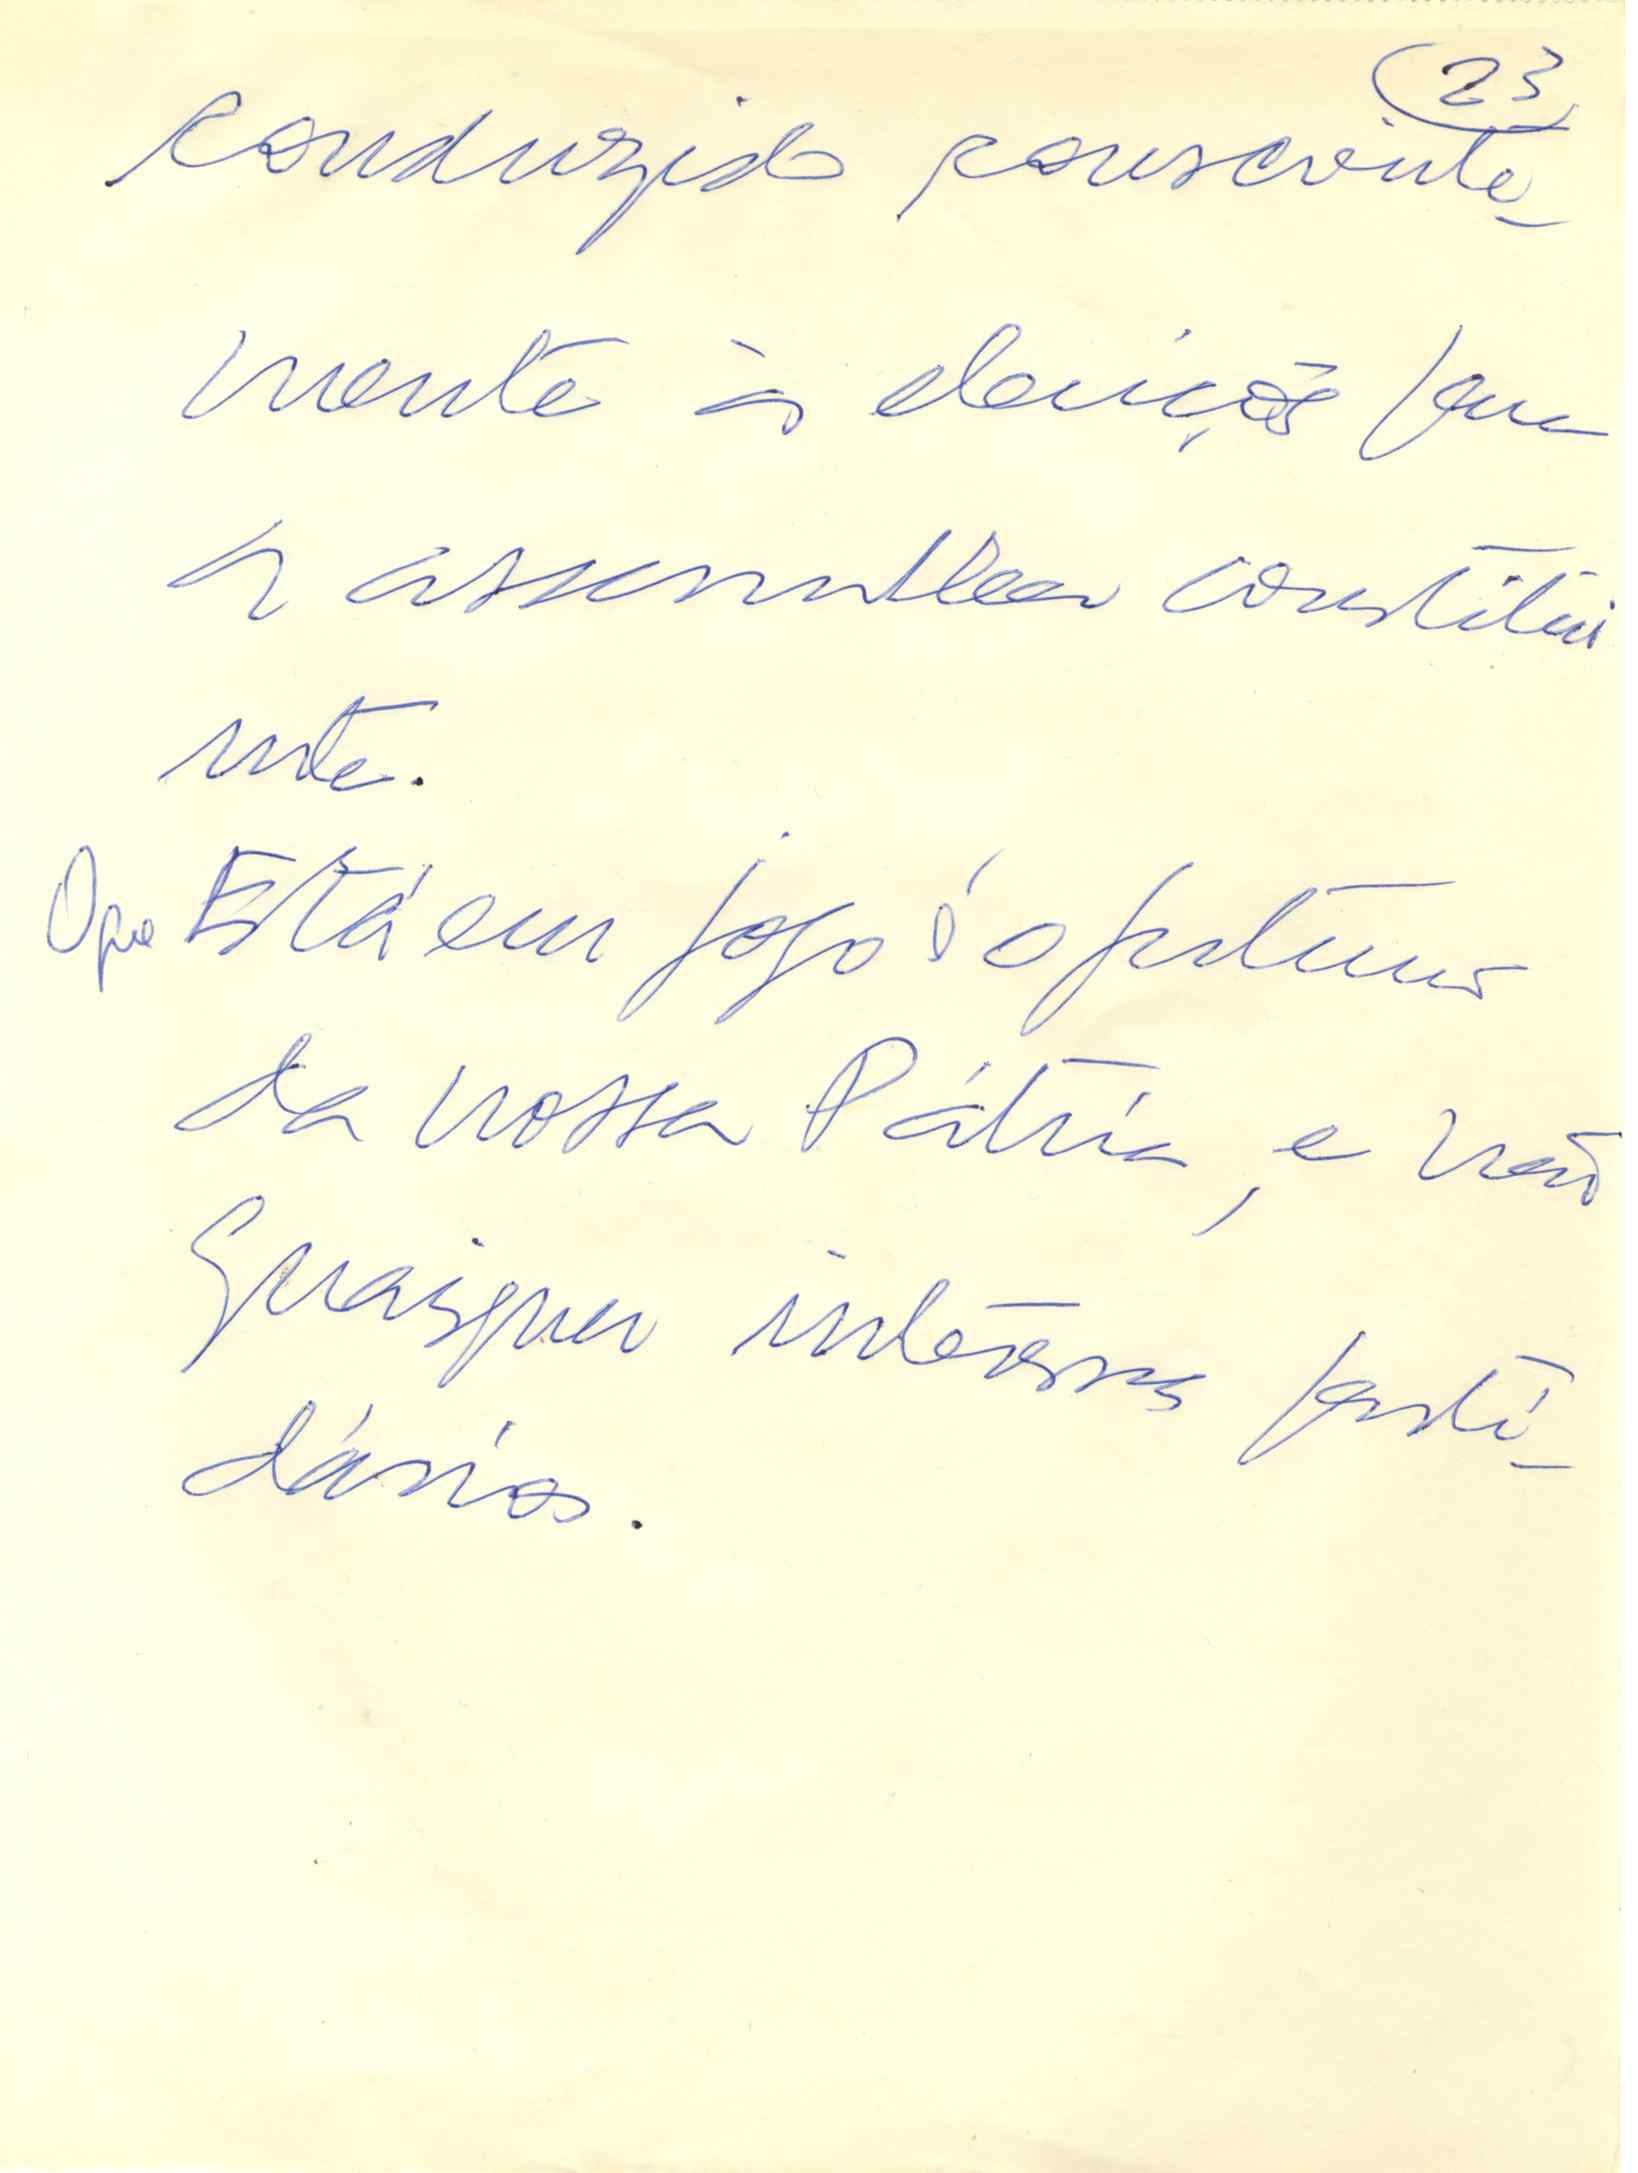 23
conduzido consciente-
mente às eleições para
a assembleia constitui
nte.
O que Está em jogo é o futuro
da nossa Pátria, e não
quaisquer interesses parti-
dários.